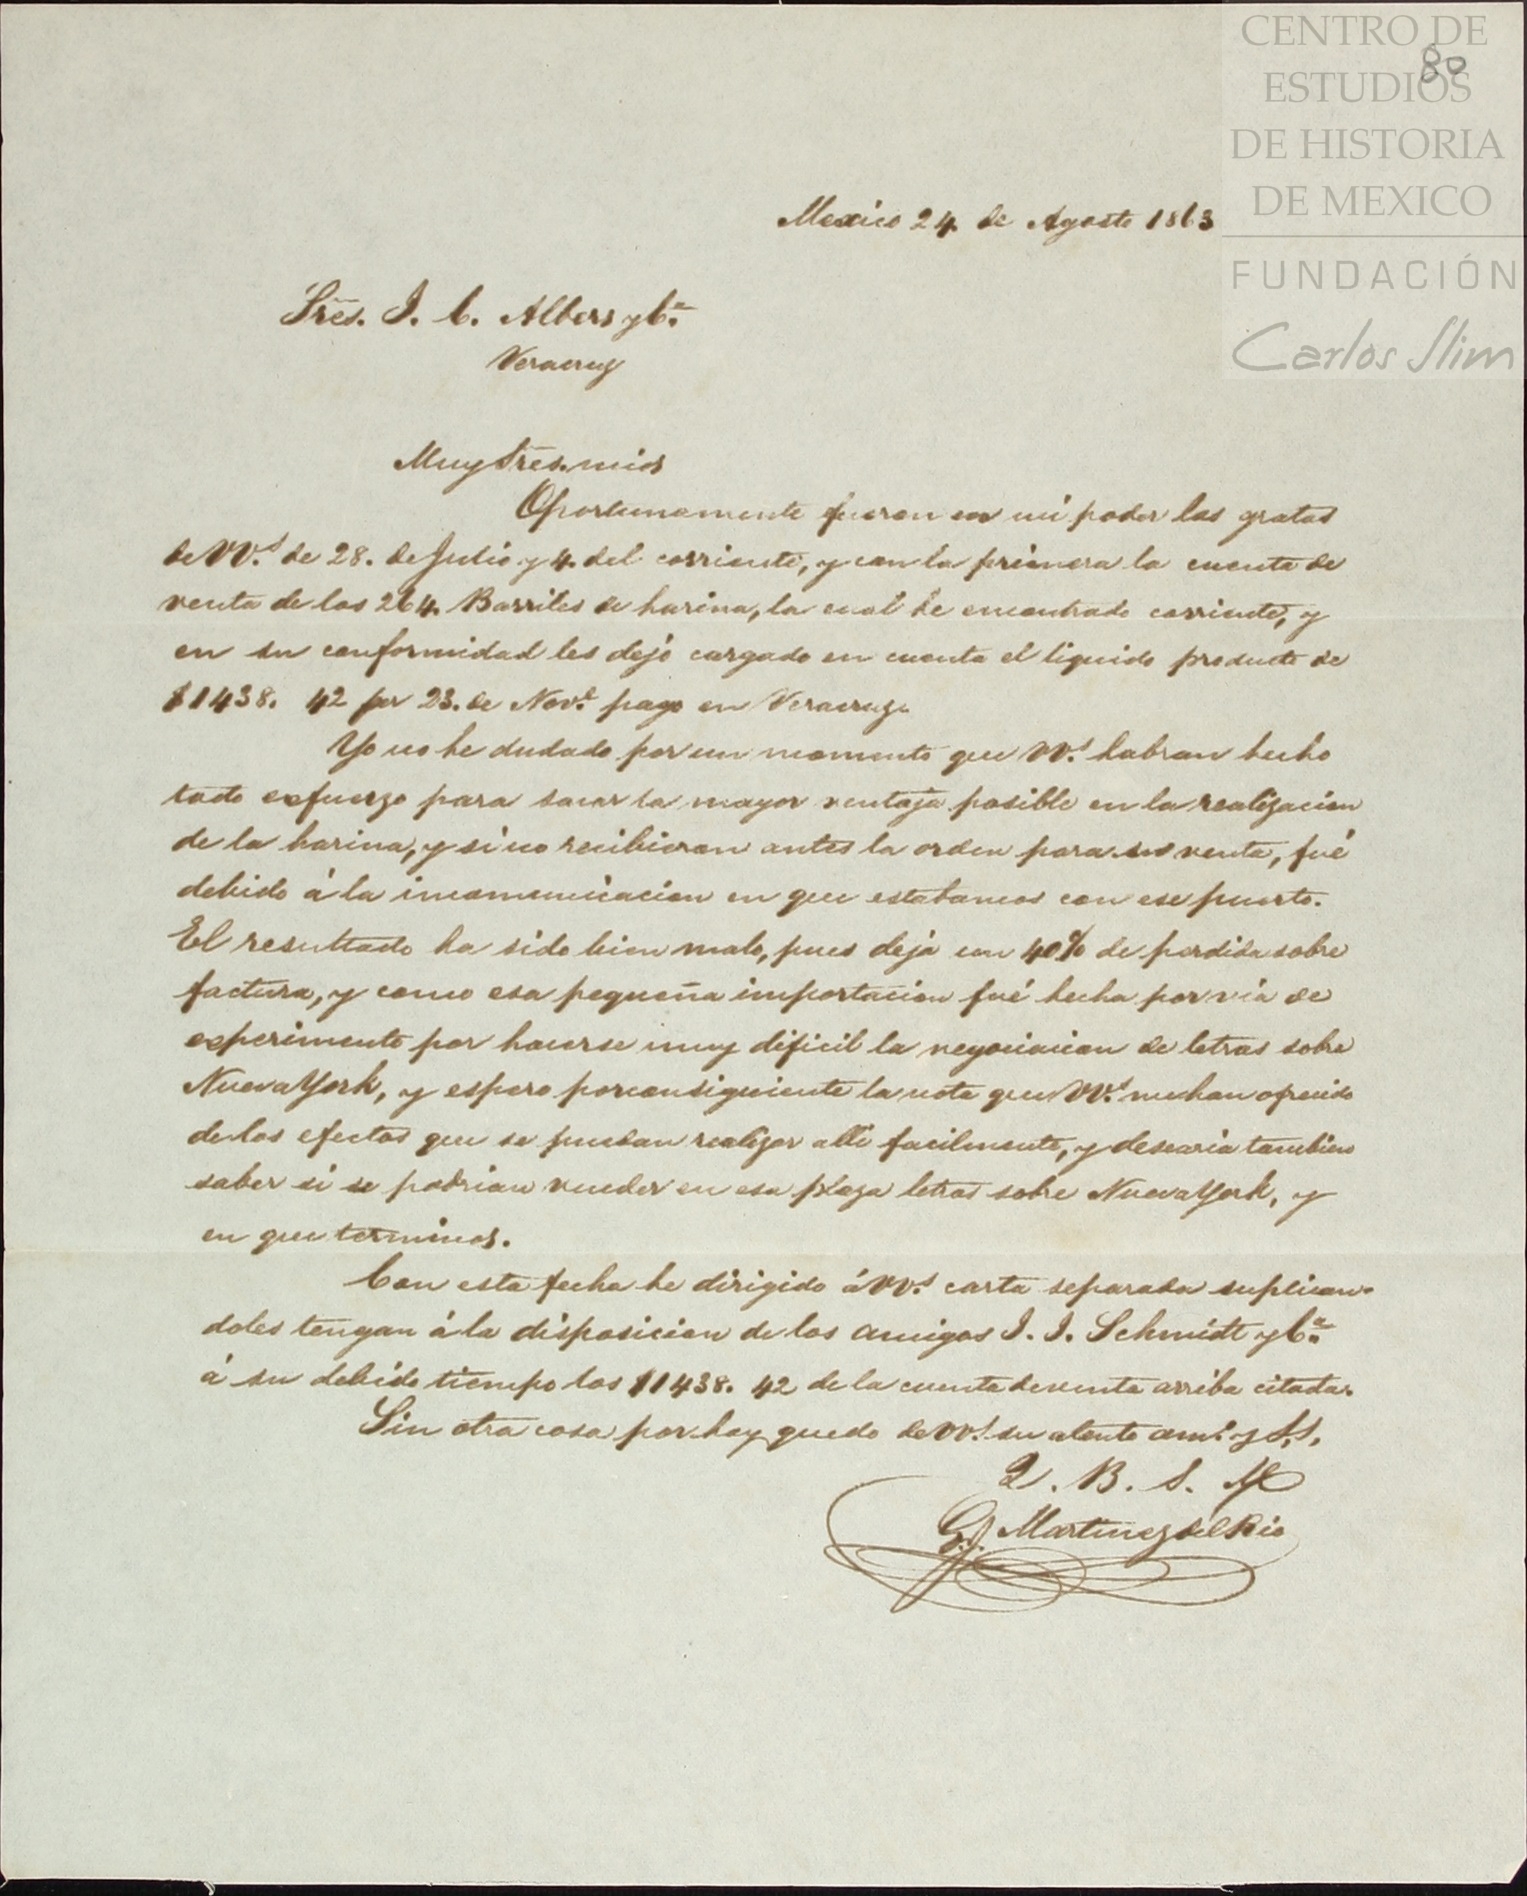 CENTRO DE
ESTUDIOS
DE HISTORIA
DE MEXICO
FUNDACIÓN
Carlos Slim
80
Mexico 24. de Agosto 1863
Sres. J. C. Albers y Ca.
Veracruz
Muy Sres. mios
Oportunamente fueron en mi poder las gratas
de VVs. de 28. de Julio y 4. del corriente, y con la primera la cuenta de
venta de los 264. Barriles de harina, la cual he encontrado corriente, y
en su conformidad les dejo cargado en cuenta el liquido producto de
$1438. 42 por 23. de Nove. pago en Veracruz.
Yo no he dudado por un momento que VVs. habran hecho
todo esfuerzo para sacar la mayor ventaja posible en la realizacion
de la harina, y si no recibieron antes la orden para su venta, fué
debido á la incomunicacion en que estabamos con ese puerto.
El resultado ha sido bien malo, pues deja un 40% de perdida sobre
factura, y como esa pequeña importacion fué hecha por via de
experimento por hacerse muy dificil la negociacion de letras sobre
Nueva York, y espero porconsiguiente la nota que VVs. me han ofrecido
de los efectos que se puedan realizar alli facilmente, y desearia tambien
saber si se podrian vender en esa plaza letras sobre Nueva York, y
en que terminos.
Con esta fecha he dirigido á VVs. carta separada suplican-
doles tengan á la disposicion de los amigos J. J. Schmidt y Ca.
á su debido tiempo los $1438. 42 de la cuenta de venta arriba citada.
Sin otra cosa por hoy quedo de VVs. su atento amo. y S. S.
Q. B. S. M
G. Martinez del Rio